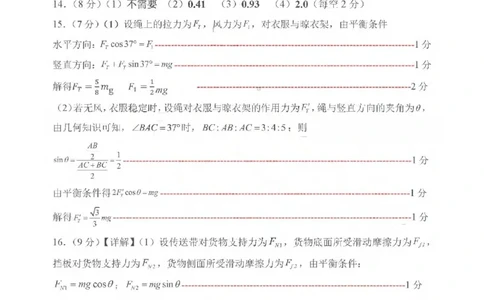 14.（8分）（1）不需要 （2）0.41 （3）0.93 （4）2.0（每空2分）
15.（7分）（1）设绳上的拉力为F_T，风力为F_1，对衣服与晾衣架，由平衡条件
水平方向：F_T cos37°=F_1 1分
竖直方向：F_T+F_T sin37°=mg 1分
解得F_T=5/8 mg F_1=1/2 mg 2分
（2）若无风，衣服稳定时，设绳对衣服与晾衣架的作用力为F_T'，绳与竖直方向的夹角为θ，
由几何知识可知，∠BAC=37°时，BC:AB:AC=3:4:5；则
sinθ=(AB/2)/((AC+BC)/2)=1/2 1分
由平衡条件得2F_T'cosθ=mg 1分
解得F_T'=√3/3 mg 1分
16.（9分）【详解】（1）设传送带对货物支持力为F_N1，货物底面所受滑动摩擦力为F_f1，
挡板对货物支持力为F_N2，货物侧面所受滑动摩擦力为F_f2，由平衡条件：
F_N1=mg cosθ；F_N2=mg sinθ 1分